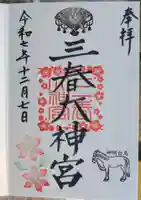 奉拝
三春大神宮
令和七年十二月七日